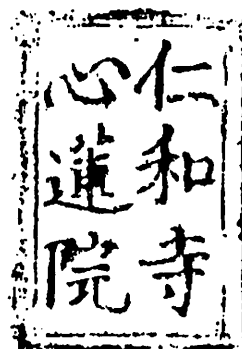 仁和寺
心蓮院